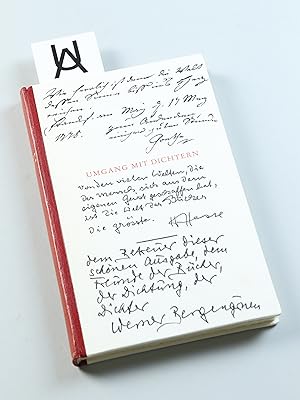 Wie herrlich ist denn die Welt
May d. 17 May
Andencken
Goethe
UMGANG MIT DICHTERN
Von den vielen Welten, die
der Mensch sich aus dem
eigenen Geist geschaffen hat,
ist die Welt der Bücher
die grösste.
HHesse
dem Betreuer dieser
schönen Ausgabe, dem
Freunde der Bücher,
der Dichtung, der
Dichter
Werner Bergengruen